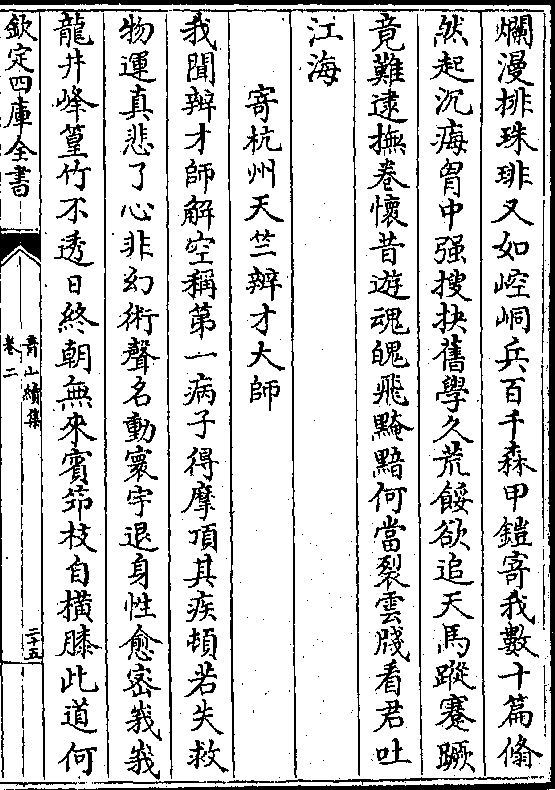 爛漫排珠琲又如崆峒兵百千森甲鎧寄我數十篇翛
然起沉痗胷中强搜抉舊學久荒餒欲追天馬蹤蹇蹶
竟難逮撫卷懷昔遊魂魄飛黤黯何當裂雲牋看君吐
江海
寄杭州天竺辨才大師
我聞辨才師解空稱第一病子得摩頂其疾頓若失救
物運真悲了心非幻術聲名動寰宇退身性愈密峩峩
龍井峰篁竹不透日終朝無來賓笻枝自横膝此道何
欽定四庫全書
青山續集
卷二
二十五